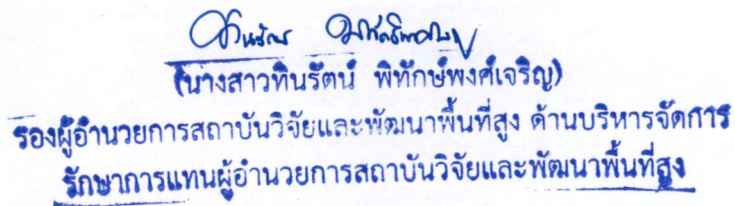 (นางสาวทินรัตน์ พิทักษ์พงศ์เจริญ)
รองผู้อำนวยการสถาบันวิจัยและพัฒนาพื้นที่สูง ด้านบริหารจัดการ
รักษาการแทนผู้อำนวยการสถาบันวิจัยและพัฒนาพื้นที่สูง